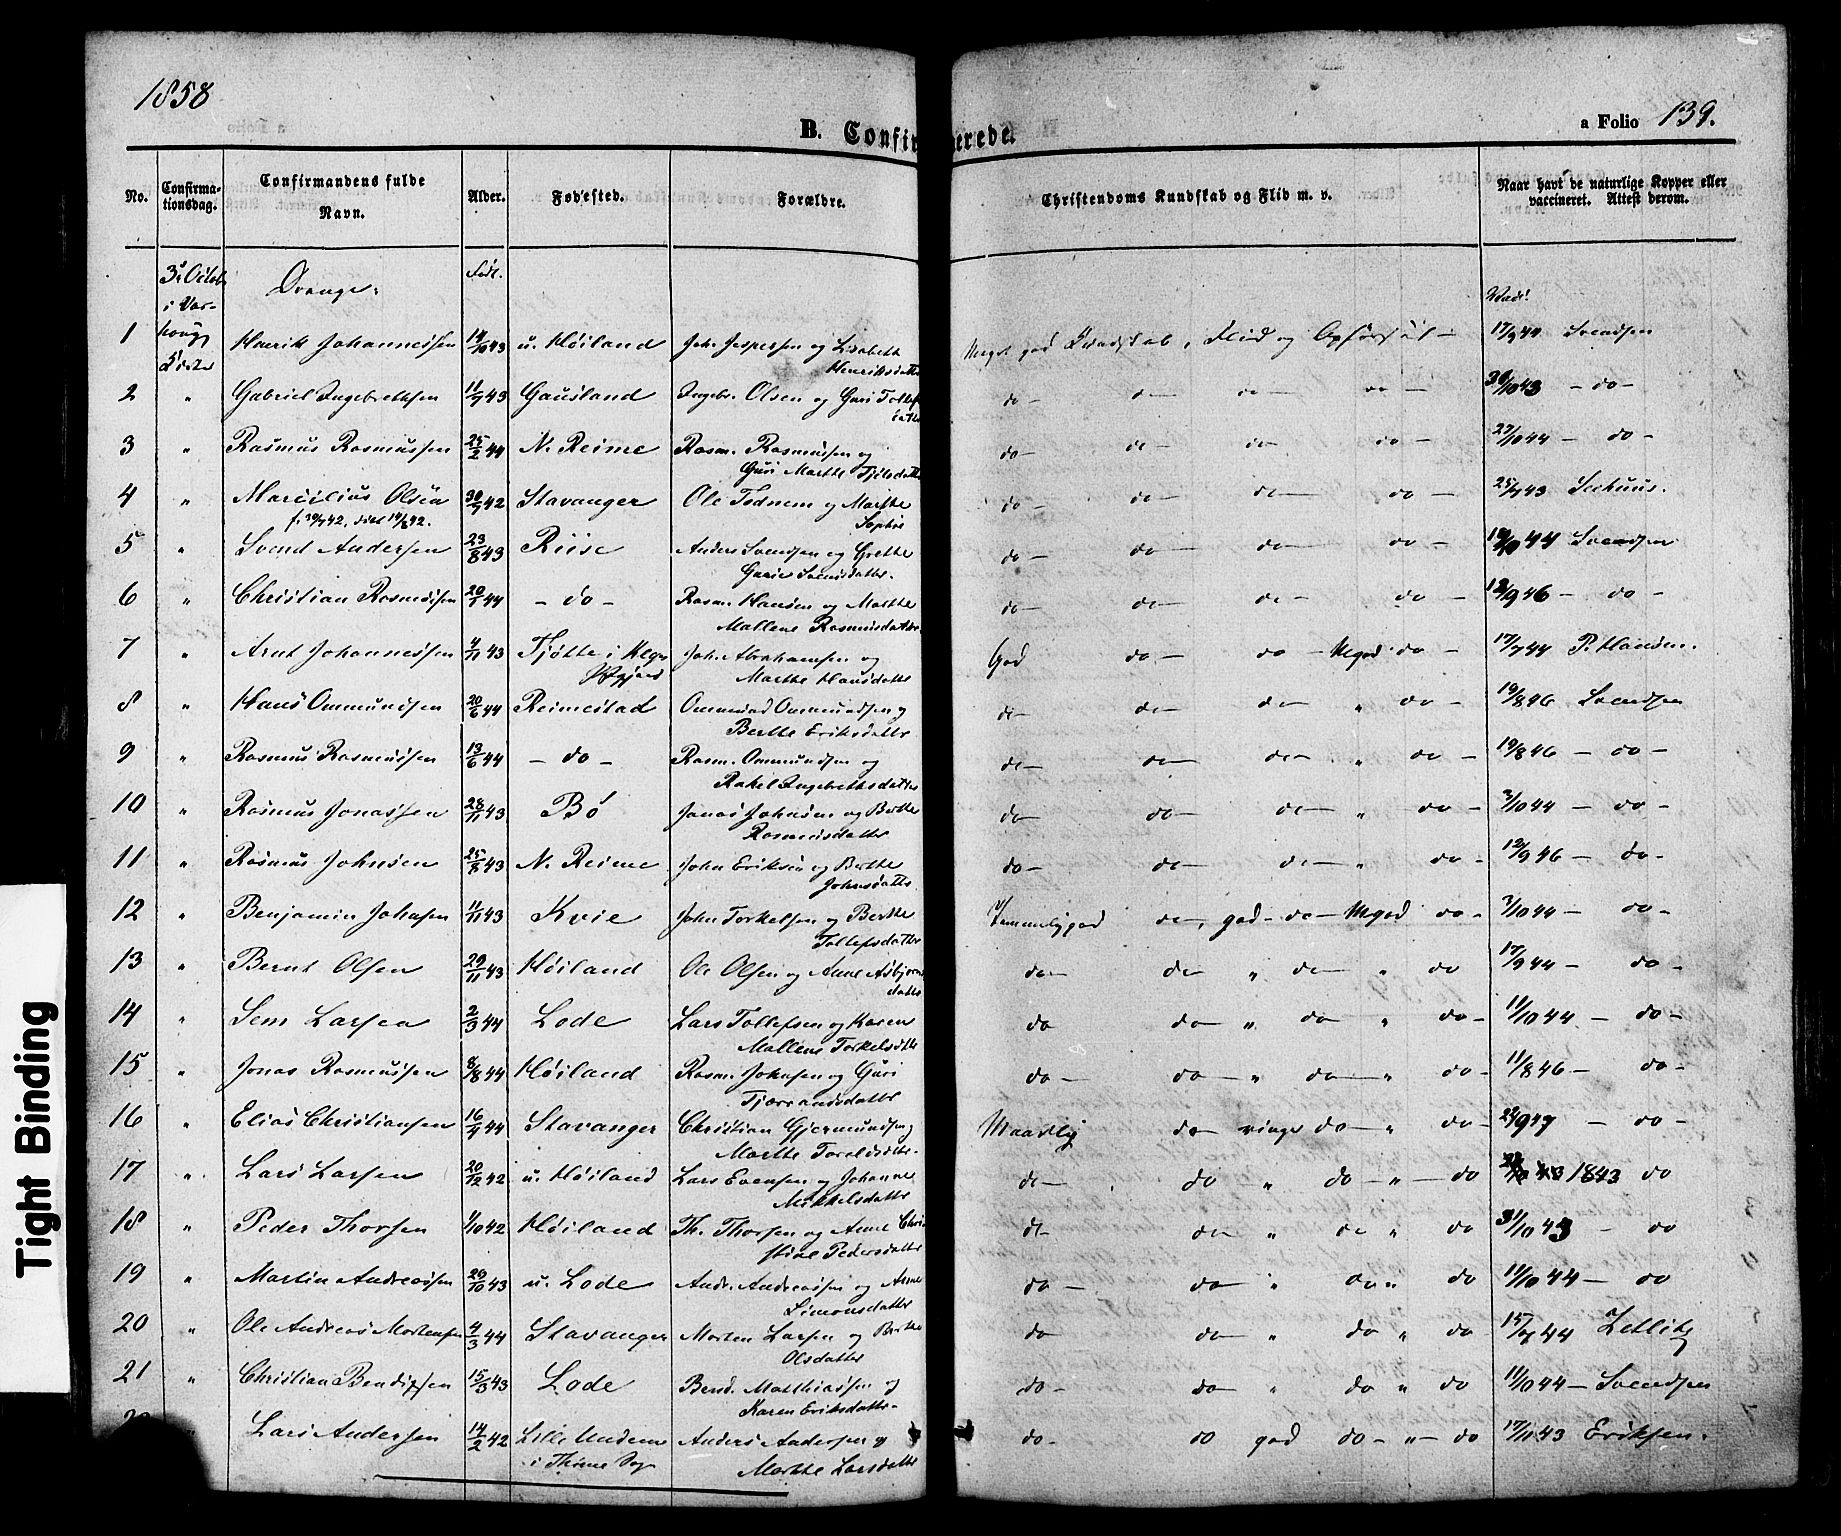 1858
B. Confirmerede.
a Folio 139.
No. Confirmationsdag. Confirmandens fulde Navn. Alder. Fødested. Forældre. Christendoms Kundskab og Flid m. v. Naar havt de naturlige Kopper eller vaccineret. Attest derom.
3die Octob. i Varhoug Kirke Drenge. Født. Vacc.
1 Henrik Johannessen 14/10 43 u. Høiland Joh. Jespersen og Lisabeth Henriksdatter Meget god Kundskab, Flid og Opførsel - 17/9 44 Svendsen
2 " Gabriel Ingebrethsen 11/7 43 Gausland Ingebr. Olsen og Guri Tollefsdatter do - do - do - do - 30/10 43 - do -
3 " Rasmus Rasmussen 25/2 44 N. Reime Rasm. Rasmussen og Guri Marthe Tjølsdatter do - do - do do - 27/10 44 - do -
4 " Marcelius Olsen 30/7 42 Stavanger Ole Todnem og Marthe Sophie do - do - do - do - 25/7 43 Seehuus.
f. 30/7 42, døbt 14/8 42.
5 " Svend Andersen 23/8 43 Riise Anders Svendsen og Grethe Gurie Svensdatter. do - do - do - do - 10/10 44 Svendsen
6 " Christian Rasmussen 20/1 44 - do - Rasm. Hansen og Marthe Mallene Rasmusdatter. do - do - do - do - 12/9 46 - do -
7 " Arnt Johannessen 4/11 43 Tjøtte i Klep Joh. Abrahamsen og Marthe Hansdatter God do - do - Mgod do - 17/7 44 P. Hansen.
8 " Hans Ommundsen 20/6 44 Reimestad Ommund Ommundsen og Berthe Eriksdatter do - do - do - " do - 19/8 46 Svendsen
9 " Rasmus Rasmussen 13/6 44 - do - Rasm. Ommundsen og Rakel Ingebrethsdatter do - do - do - " do - 19/8 46 - do -
10 " Rasmus Jonassen 28/11 43 Bø Jonas Johnsen og Berthe Rasmusdatter do - do - do - " do - 3/10 44 - do -
11 " Rasmus Johnsen 25/8 43 N. Reime John Eriksen og Berthe Johnsdatter do - do - do - " do - 12/9 46 - do -
12 " Benjamin Johnsen 11/11 43 Kvie John Torkelsen og Berthe Tollefsdatter Temmelig god do -, god - do - Mgod do - 3/10 44 - do -
13 " Bernt Olsen 29/11 43 Høiland Ole Olsen og Anne Asbjørnsdatter do - do " do - " do 17/9 44 - do -
14 " Sem Larsen 2/3 44 Lode Lars Tollefsen og Karen Mallene Torkelsdtr do do - " do - " do - 11/10 44 - do -
15 " Jonas Rasmussen 8/8 44 Høiland Rasm. Johnsen og Guri Tjærrandsdatter do - do - " do - " do - 11/8 46 - do -
16 " Elias Christiansen 16/9 44 Stavanger Christian Gjermundsen og Marthe Toraldsdtr. Maadelig do - ringe do - " do - 22/9 47 - do -
17 " Lars Larsen 20/12 42 u. Høiland Lars Evensen og Johanne Mikkelsdatter do - do " do - " - do 1843 do
18 " Peder Thorsen 1/10 42 Høiland Th. Thorsen og Anne Christine Pedersdatter do - do - " do - " do 31/10 43 - do
19 " Martin Andreassen 20/10 43 u. Lode Andr. Andreassen og Anne Simonsdatter do - do - " do - " do 11/10 44 - do
20 " Ole Andreas Mortensen 4/3 44 Stavanger Morten Larsen og Berthe Olsdatter do do - " do - " do 15/7 44 Zetlitz
21 " Christian Bendixsen 15/3 43 Lode Bend. Matthiassen og Karen Eriksdatter. do - do - " do " do 11/10 44 - Svendsen
Lars Andersen 14/2 42 Lille Undem i Thime Sogn Anders Andersen og Marthe Larsdatter do - do god do - " - do 17/11 43 Eriksen.
Tight Binding